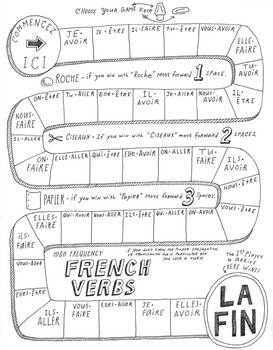 CHOOSE YOUR GAME PIECE
COMMENCEZ
ICI
JE-AVOIR
JE-ÊTRE
IL-FAIRE
TU-ÊTRE
ELLE-FAIRE
TU-AVOIR
IL-ÊTRE
JE-AVOIR
NOUS-ALLER
IL-AVOIR
ELLE-ÊTRE
TU-ALLER
ON-ÊTRE
NOUS-FAIRE
IL-ALLER
ROCHE - if you win with "Roche" move forward 1 space.
CISEAUX - if you win with "CISEAUX" move forward 2 spaces.
ON-FAIRE
ELLE-ALLER
QUI-ÊTRE
ELLE-AVOIR
ON-ALLER
TU-FAIRE
ILS-AVOIR
PAPIER - if you win with "Papier" move forward 3 spaces.
ELLES-FAIRE
QUI-AVOIR
NOUS-AVOIR
ILS-ÊTRE
QUI-ALLER
ON-AVOIR
ILS-FAIRE
VOUS-ÊTRE
VOUS-ALLER
ELLES-ÊTRE
ILS-ALLER
VOUS-FAIRE
ELLES-ALLER
JE-FAIRE
ELLES-AVOIR
HIGH FREQUENCY
FRENCH
VERBS
if you don't know the proper conjugation
or pronunciation for a particular box
you lose a turn.
The 1st Player
to arrive
HERE WINS!
LA
FIN